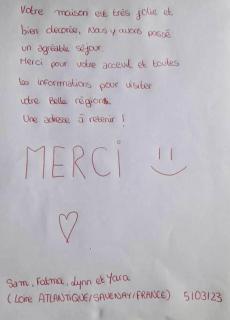 Votre maison est très jolie et
bien décorée, Nous y avons passé
un agréable séjour.
Merci pour votre acceuil et toutes
les informations pour visiter
votre Belle région.
Une adresse à retenir !
MERCi
Sam, Fatma, Lynn et Yara
(Loire ATLANTIQUE/SAVENAY/FRANCE) 5103123